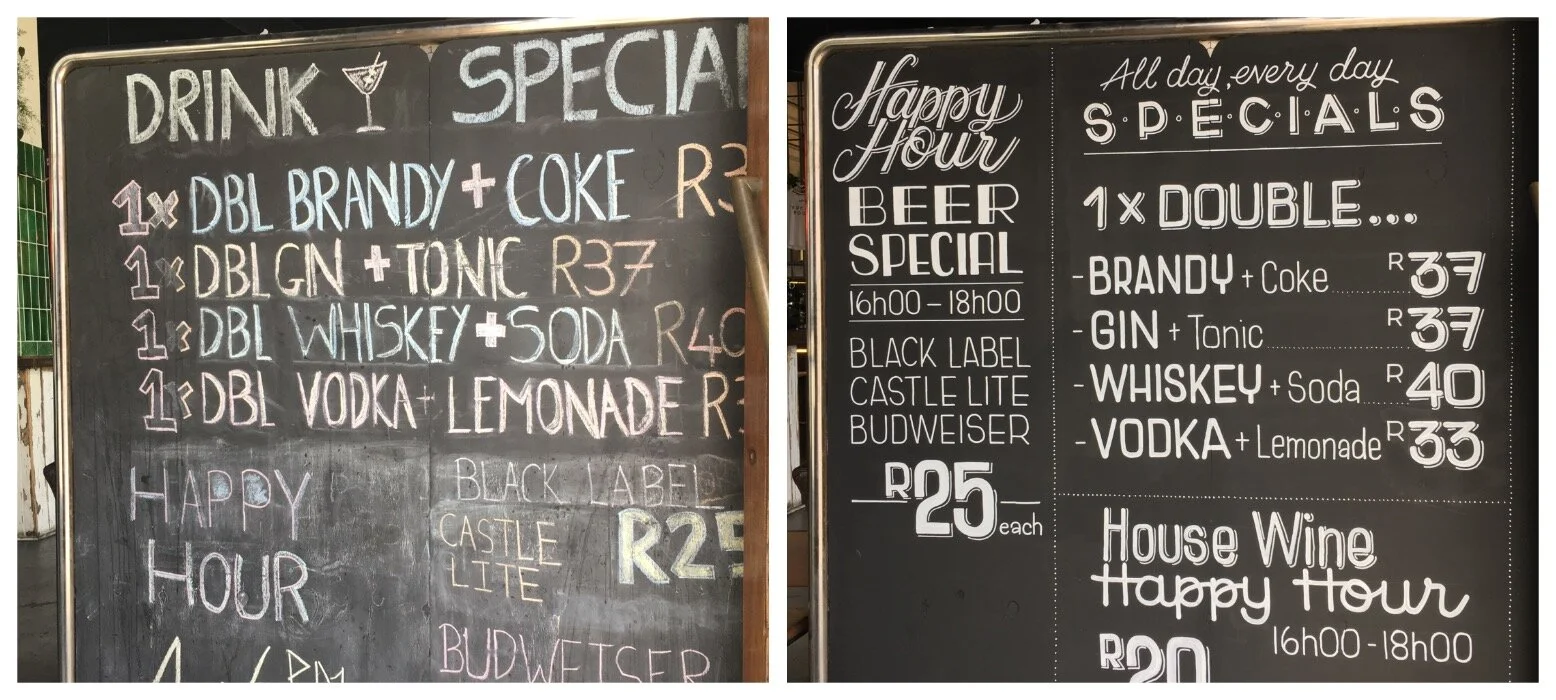 DRINK SPECIA
1x DBL BRANDY + COKE R3
1x DBL GIN + TONIC R37
1x DBL WHISKEY + SODA R40
1x DBL VODKA + LEMONADE R3
HAPPY
HOUR
BLACK LABEL
CASTLE
LITE
R25
BUDWEISER
Happy
Hour
BEER
SPECIAL
16h00 - 18h00
BLACK LABEL
CASTLE LITE
BUDWEISER
R25 each
All day, every day
S·P·E·C·I·A·L·S
1x DOUBLE...
- BRANDY + Coke R37
- GIN + Tonic R37
- WHISKEY + Soda R40
- VODKA + Lemonade R33
House Wine
Happy Hour
16h00 - 18h00
R20